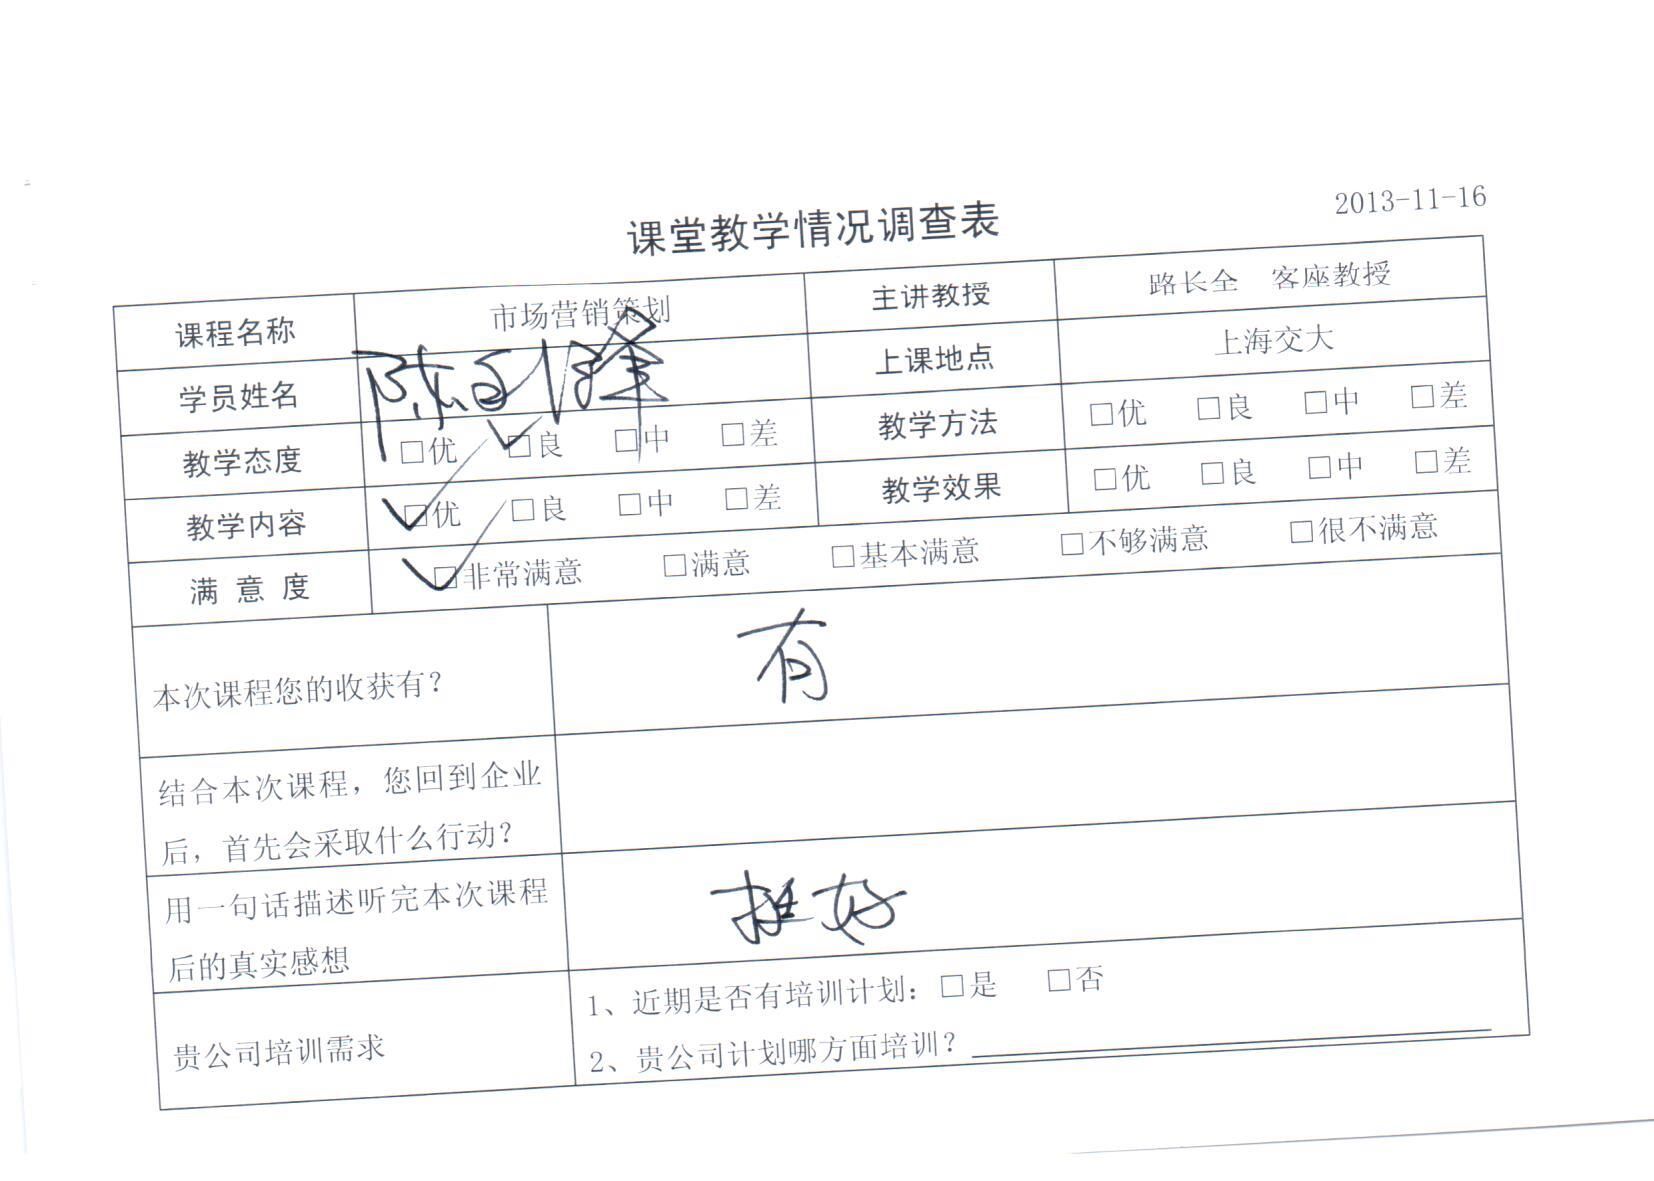 2013-11-16
课堂教学情况调查表
课程名称 市场营销策划 主讲教授 路长全 客座教授
学员姓名 陈 上课地点 上海交大
教学态度 □优 ☑良 □中 □差 教学方法 □优 □良 □中 □差
教学内容 ☑优 □良 □中 □差 教学效果 □优 □良 □中 □差
满意度 ☑非常满意 □满意 □基本满意 □不够满意 □很不满意
本次课程您的收获有？ 有
结合本次课程，您回到企业
后，首先会采取什么行动？
用一句话描述听完本次课程
后的真实感想
挺好
贵公司培训需求
1、近期是否有培训计划：□是 □否
2、贵公司计划哪方面培训？